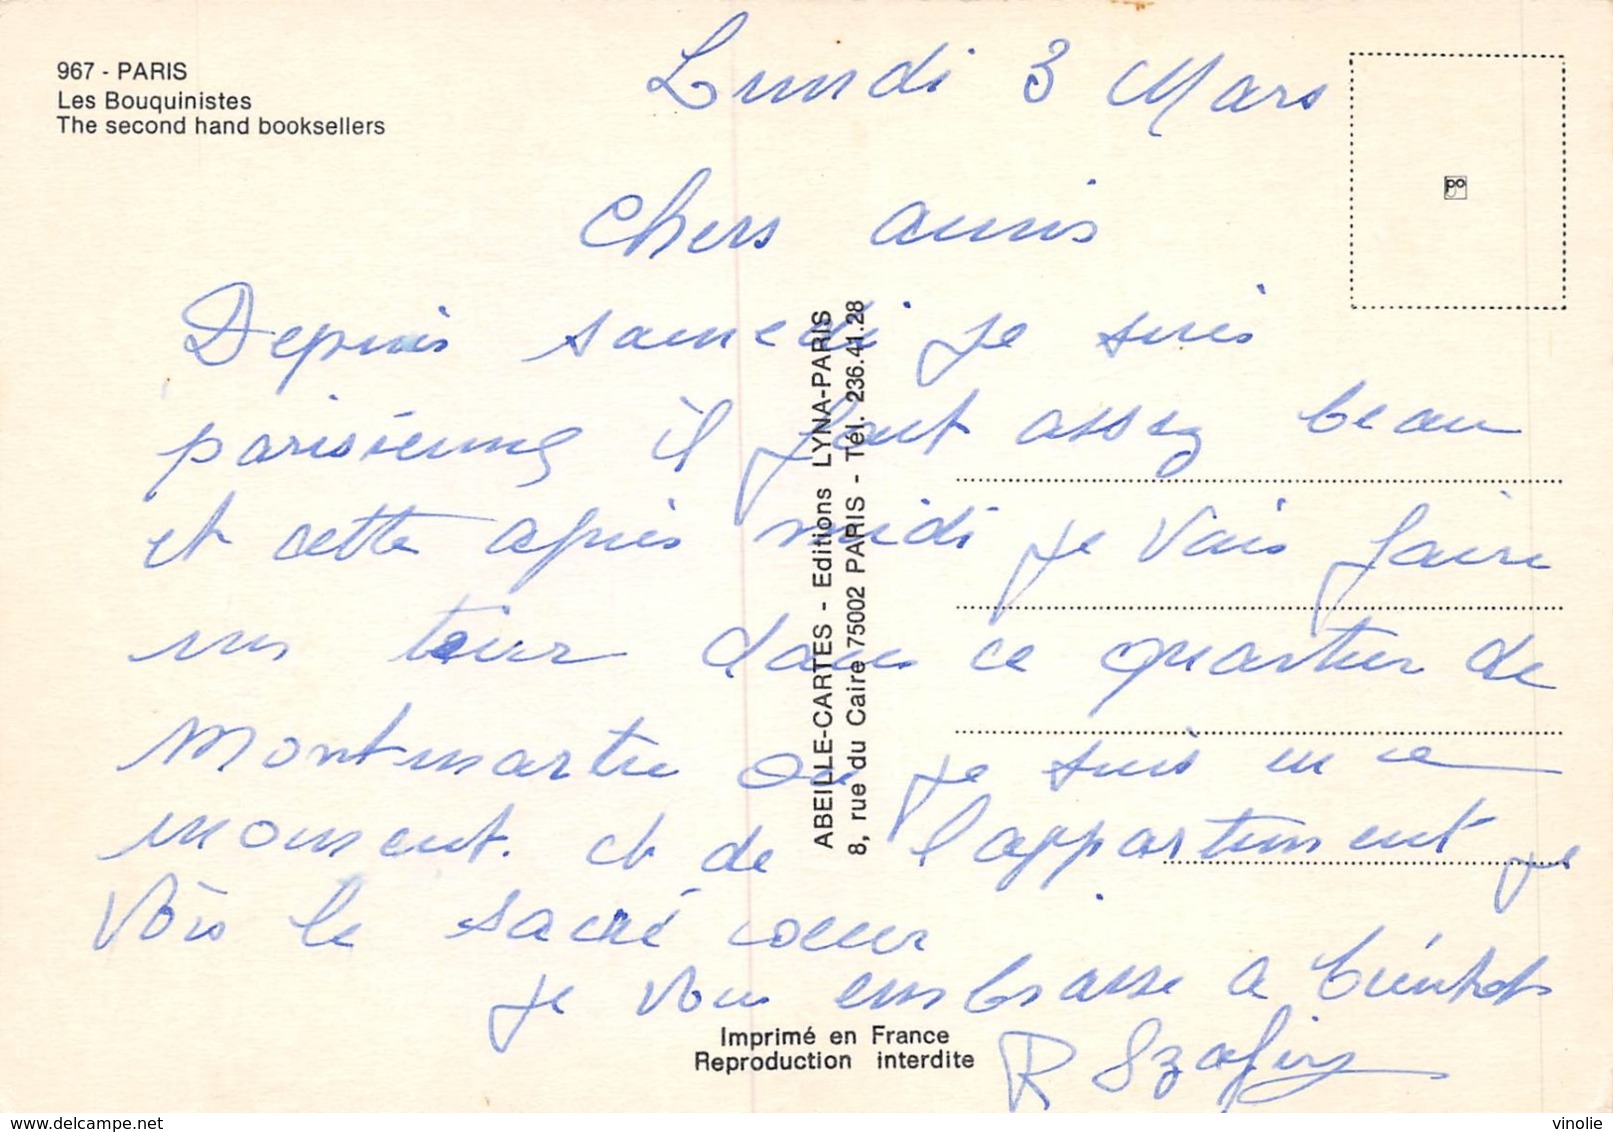 967 - PARIS
Les Bouquinistes
The second hand booksellers
Lundi 3 Mars
Chers amis
Depuis samedi je suis
parisienne il fait assez beau
et cette après midi je vais faire
un tour dans ce quartier de
Montmartre où je suis en ce
moment. et de l'appartement je
vois le sacré coeur
je vous embrasse a bientot
R
ABEILLE-CARTES - Editions LYNA-PARIS
8, rue du Caire 75002 PARIS - Tél. 236.41.28
Imprimé en France
Reproduction interdite
delcampe.net
vinolie